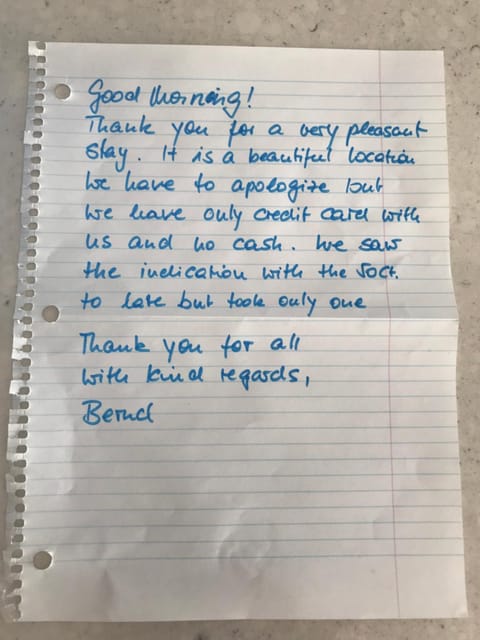 Good Morning!
Thank you for a very pleasant
stay. It is a beautiful location
We have to apologize but
we have only credit card with
us and no cash. We saw
the indication with the
to late but took only one
Thank you for all
with kind regards,
Bernd